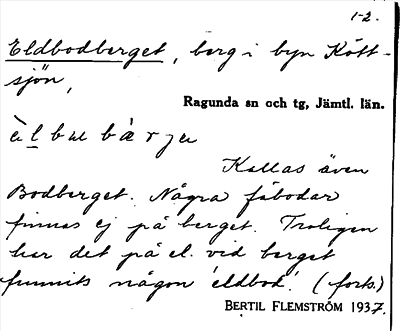 1-2.
Eldbodberget, berg i byn Kött-
sjön,
Ragunda sn och tg, Jämtl. län.
Kallas även
Bodberget. Några fäbodar
finnas ej på berget. Troligen
har det på el. vid berget
funnits någon 'eldbod'. (forts.)
BERTIL FLEMSTRÖM 1937.